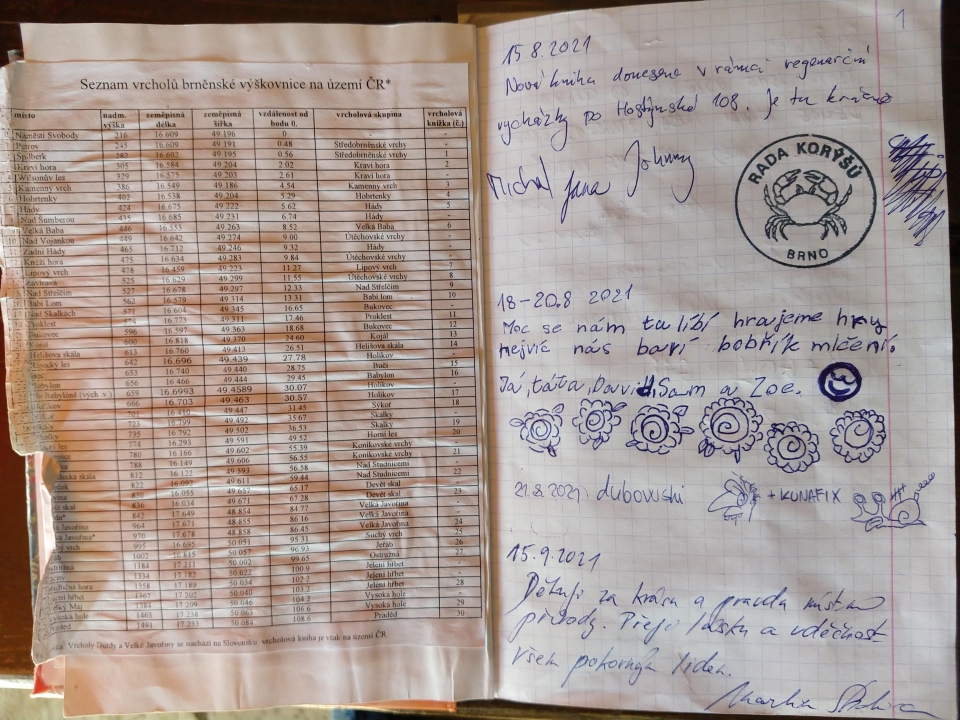 Seznam vrcholů brněnské výškovnice na území ČR*
místo nadm. výška zeměpisná délka zeměpisná šířka vzdálenost od bodu 0. vrcholová skupina vrcholová knížka (č.)
Náměstí Svobody 216 16.609 49.196 0 -
Petrov 245 16.609 49.191 0.48 Středobrněnské vrchy
Špilberk 16.602 49.195 0.56 Středobrněnské vrchy 1
Kraví hora 305 16.584 49.204 2.02 Kraví hora 2
Wilsonův les 329 16.575 49.203 2.61 Kraví hora -
Kamenný vrch 386 16.549 49.186 4.54 Kamenný vrch 3
Hobrtenky 402 16.538 49.204 5.29 Hobrtenky 4
Hády 424 16.675 49.222 5.62 Hády 5
Nad Šumberou 435 16.685 49.231 6.74 Hády -
Velká Baba 446 16.553 49.263 8.52 Velká Baba 6
Nad Vojankou 449 16.642 49.274 9.00 Útěchovské vrchy -
Zadní Hády 465 16.712 49.246 9.32 Hády -
Kněží hora 475 16.634 49.283 9.84 Útěchovské vrchy -
Lipový vrch 478 16.459 49.223 11.27 Lipový vrch 7
525 16.629 49.299 11.55 Útěchovské vrchy 8
Nad Střelčím 527 16.678 49.297 12.33 Nad Střelčím 9
Babí lom 562 16.579 49.314 13.31 Babí lom 10
Nad Skalkami 571 16.604 49.345 16.65 Bukovec -
Proklest 574 16.773 49.311 17.46 Proklest 11
Bukovec 596 16.597 49.363 18.68 Bukovec 12
600 16.818 49.370 24.60 Kojál 13
Helišova skála 613 16.760 49.413 26.51 Helišova skála 14
642 16.696 49.439 27.78 Holíkov -
653 16.740 49.440 28.75 Bučí 15
Babylon 656 16.466 49.444 29.45 Babylon 16
659 16.6993 49.4589 30.07 Holíkov -
666 16.703 49.463 30.57 Holíkov 17
16.410 49.447 31.45 Sýkoř 18
723 16.799 49.492 35.67 Skalky -
735 16.792 49.502 36.53 Skalky 19
774 16.293 49.591 49.52 Horní les 20
780 16.166 49.602 55.39 Koníkovské vrchy -
788 16.149 49.606 56.55 Koníkovské vrchy 21
812 16.122 49.593 56.58 Nad Studnicemi -
822 16.092 49.611 59.44 Nad Studnicemi 22
16.055 49.657 65.17 Devět skal -
836 16.034 49.671 67.28 Devět skal 23
842 17.649 48.854 84.77 Velká Javořina -
964 17.671 48.855 86.16 Velká Javořina -
970 17.678 48.858 86.45 Velká Javořina 24
995 16.695 50.051 95.31 Suchý vrch 25
1002 16.815 50.057 96.93 Jeřáb 26
1184 17.211 50.002 99.65 Ostružná 27
1334 17.182 50.022 100.9 Jelení hřbet -
1358 17.189 50.034 102.2 Jelení hřbet -
1367 17.202 50.040 103.2 Jelení hřbet 28
1384 17.209 50.046 104.2 Vysoká hole -
1463 17.234 50.063 106.6 Vysoká hole 29
1491 17.233 50.084 108.6 Praděd 30
Vrcholy Durdy a Velké Javořiny se nachází na Slovensku, vrcholová kniha je však na území ČR
1
15.8.2021
Nová kniha donesena v rámci regenerační
vycházky po Hostýnské 108. Je tu krásně
Michal Jana Johnny
RADA KORÝŠŮ
BRNO
18-20.8 2021
Moc se nám tu líbí hrajeme hry
nejvíc nás baví bobřík mlčení.
Já, táta, David, Sam a Zoe.
21.8.2021 dubovushi + KUNAFIX
15.9.2021
Děkuji za krásu a pravdu místa
přírody. Přeji lásku a vděčnost
všem pokorným lidem.